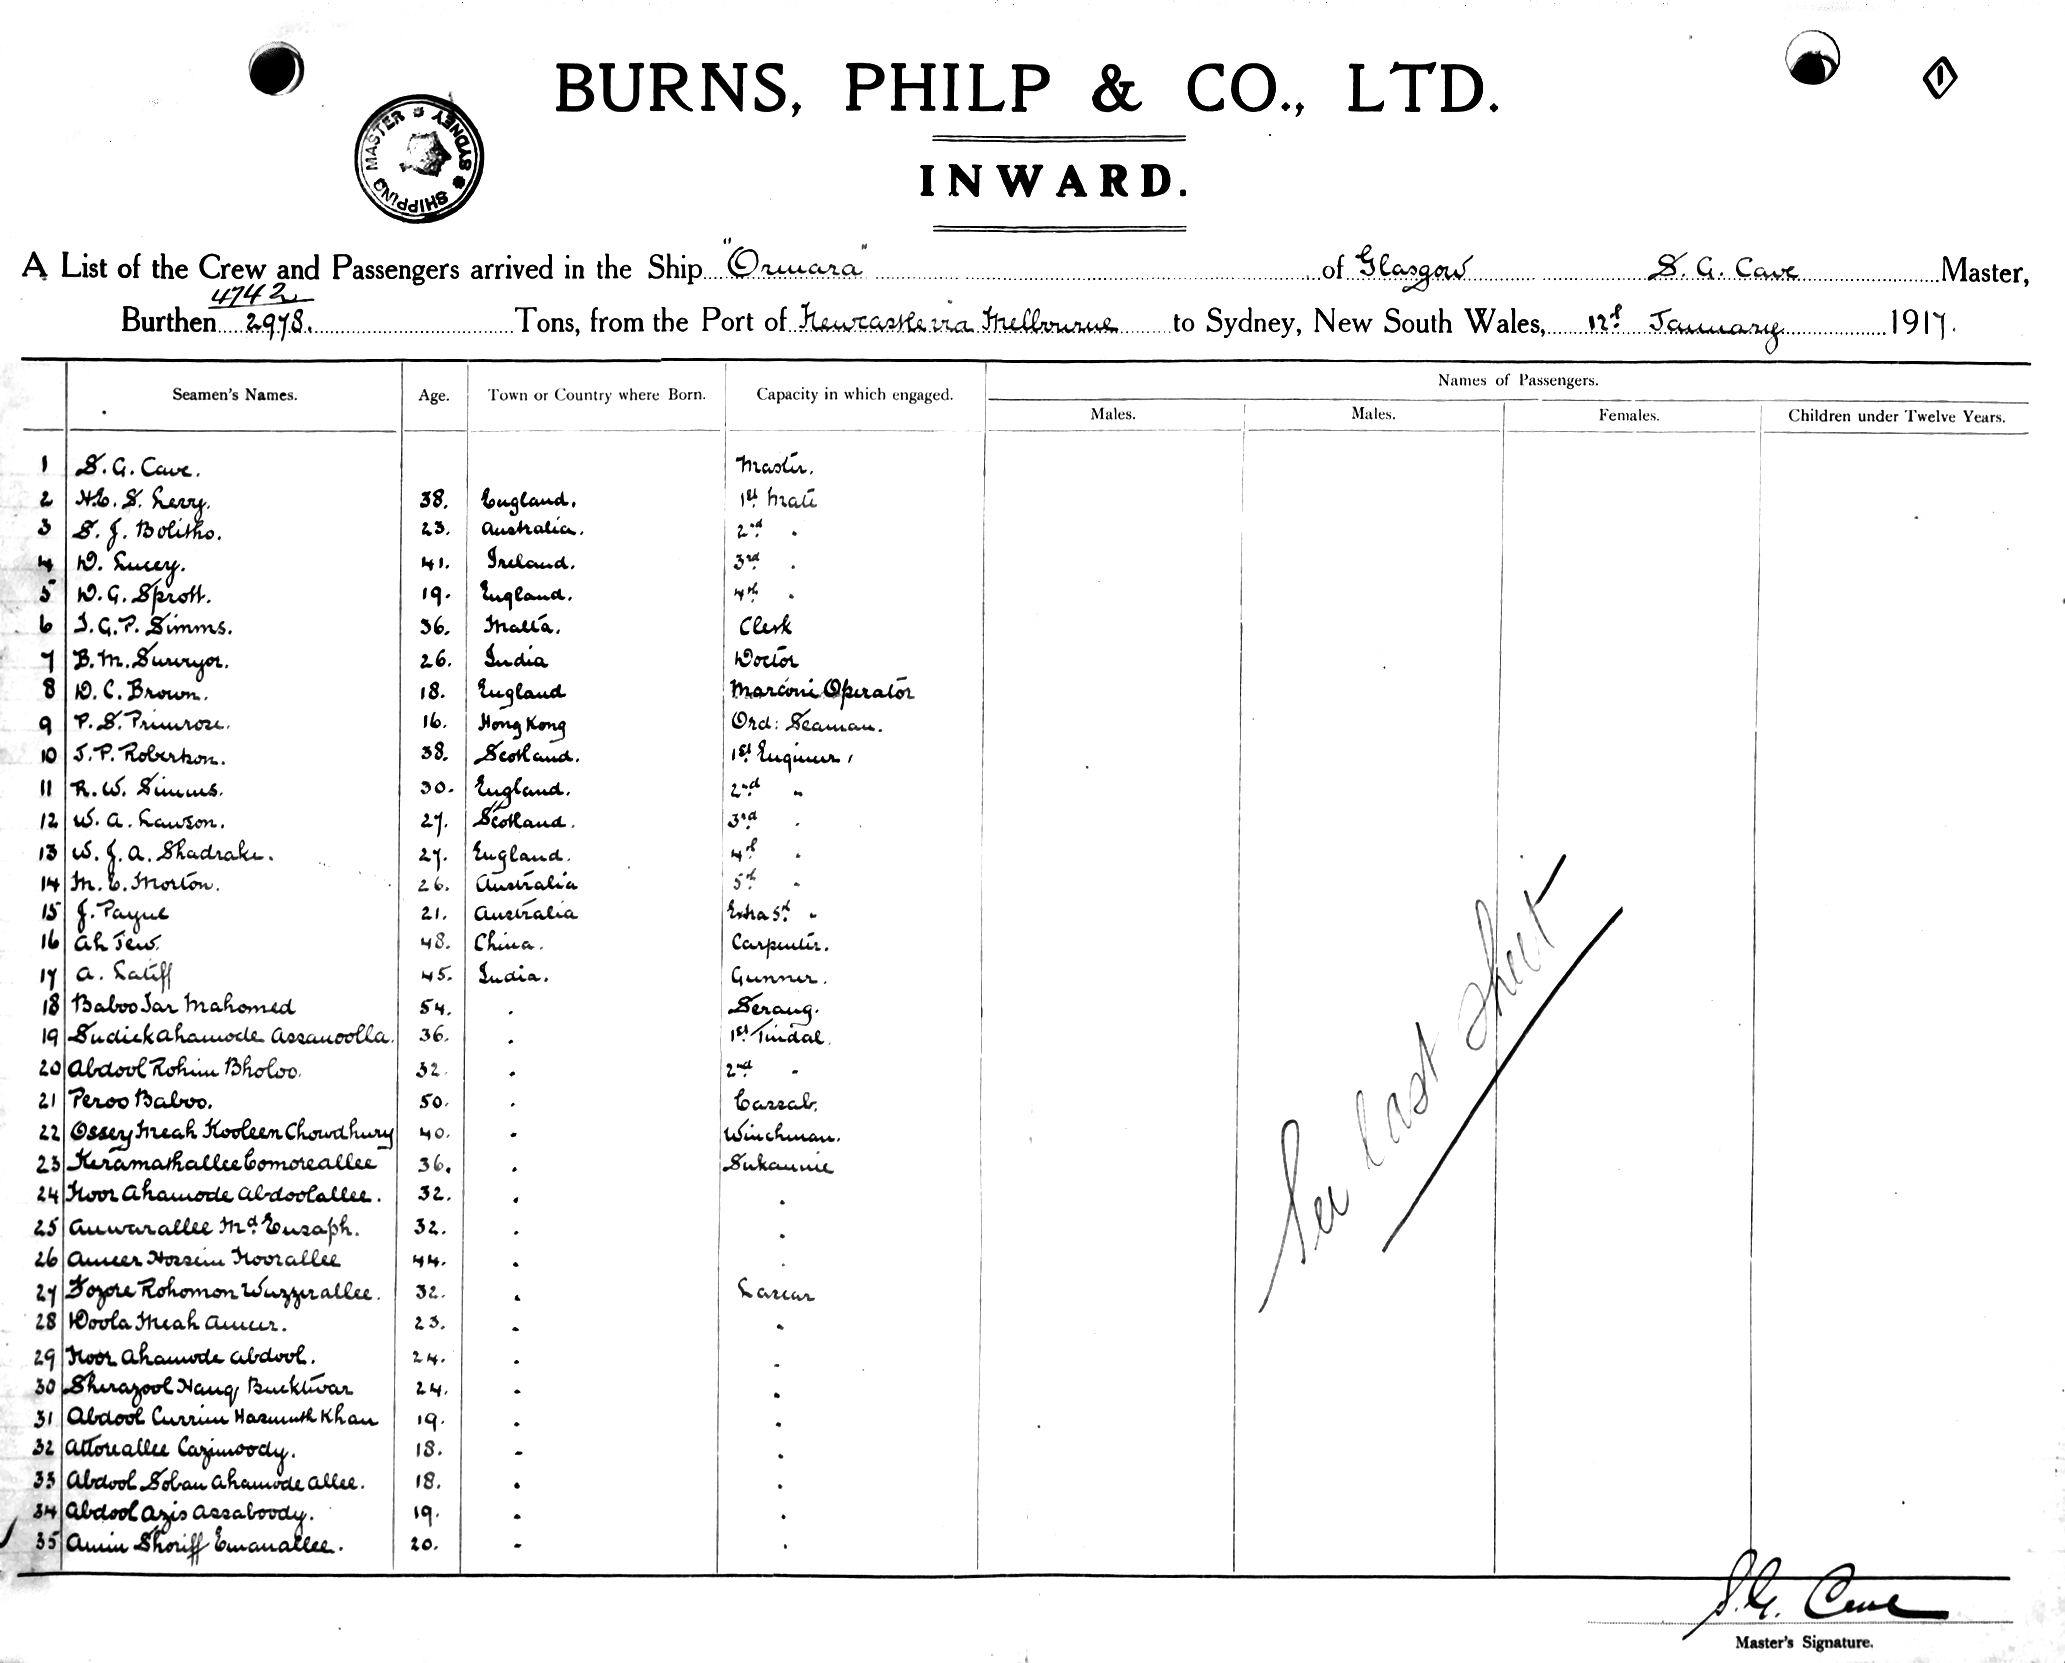 BURNS, PHILP & CO., LTD.
SHIPPING MASTER * SYDNEY *
1
INWARD.
A List of the Crew and Passengers arrived in the Ship "Ormara" of Glasgow S. G. Cave Master,
4742
Burthen 2978. Tons, from the Port of Newcastle via Melbourne to Sydney, New South Wales, 12th January 1917.
Seamen's Names. Age. Town or Country where Born. Capacity in which engaged. Names of Passengers.
Males. Males. Females. Children under Twelve Years.
1 S. G. Cave. Master.
2 H.E. S. Lerry. 38. England. 1st Mate
3 S. J. Bolitho. 23. Australia. 2nd "
4 D. Lucey. 41. Ireland. 3rd "
5 D. G. Sprott. 19. England. 4th "
6 J. G. P. Simms. 36. Malta. Clerk
7 B. M. Surveyor. 26. India Doctor
8 D. C. Brown. 18. England Marconi Operator
9 P. S. Primrose. 16. Hong Kong Ord: Seaman.
10 J. P. Robertson. 38. Scotland. 1st Engineer,
11 R. W. Simms. 30. England. 2nd "
12 W. A. Lawson. 27. Scotland. 3rd "
13 W. J. A. Shadrake. 27. England. 4th "
14 M. E. Morton. 26. Australia 5th "
15 J. Payne 21. Australia Extra 5th "
16 Ah Tew. 48. China. Carpenter.
17 A. Latiff 45. India. Gunner.
18 Baboo Jar Mahomed 54. " Serang.
19 Sudick Ahamode Assanoolla. 36. " 1st Tindal.
20 Abdool Rohim Bholoo. 32. " 2nd "
21 Peroo Baboo. 50. " Cassab.
22 Ossey Meah Kooleen Chowdhury 40. " Winchman.
23 Keramathallee Comoreallee 36. " Sukannie
24 Noor Ahamode Abdoolallee. 32. " "
25 Anwarallee Md. Eusaph. 32. " "
26 Ameer Hossein Noorallee 44. " "
27 Fozore Rohomon Wuzzerallee. 32. " Lascar
28 Doola Meah Ameer. 23. " "
29 Noor Ahamode Abdool. 24. " "
30 Sherazool Hauq Bucktwar 24. " "
31 Abdool Currim Hasmuth Khan 19. " "
32 Attoreallee Cazimoody. 18. " "
33 Abdool Soban Ahamode Allee. 18. " "
34 Abdool Azis Assaboody. 19. " "
35 Amin Shoriff Emanallee. 20. " "
See last sheet
S. G. Cave
Master's Signature.